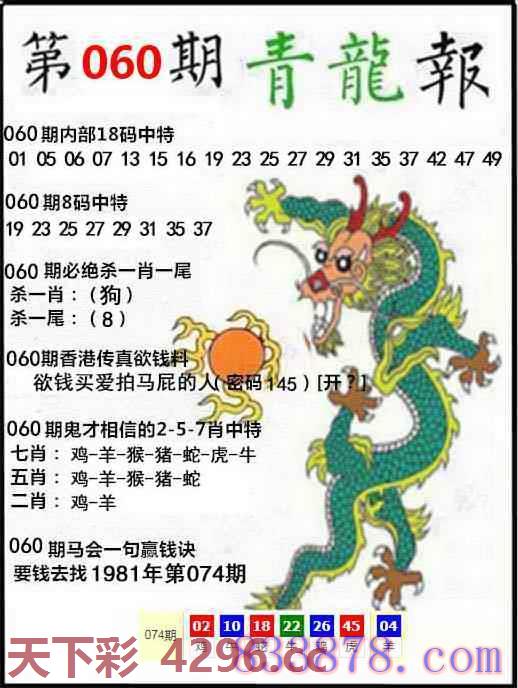 第060期 青龍報
060期内部18码中特
01 05 06 07 13 15 16 19 23 25 27 29 31 35 37 42 47 49
060期8码中特
19 23 25 27 29 31 35 37
060期必绝杀一肖一尾
杀一肖：（狗）
杀一尾：（8）
060期香港传真欲钱料
欲钱买爱拍马屁的人（密码145）[开？]
060期鬼才相信的2-5-7肖中特
七肖：鸡-羊-猴-猪-蛇-虎-牛
五肖：鸡-羊-猴-猪-蛇
二肖：鸡-羊
060期马会一句赢钱诀
要钱去找1981年第074期
074期 02 10 18 22 26 45 04
虎 羊
天下彩 4296.cc
838878.com